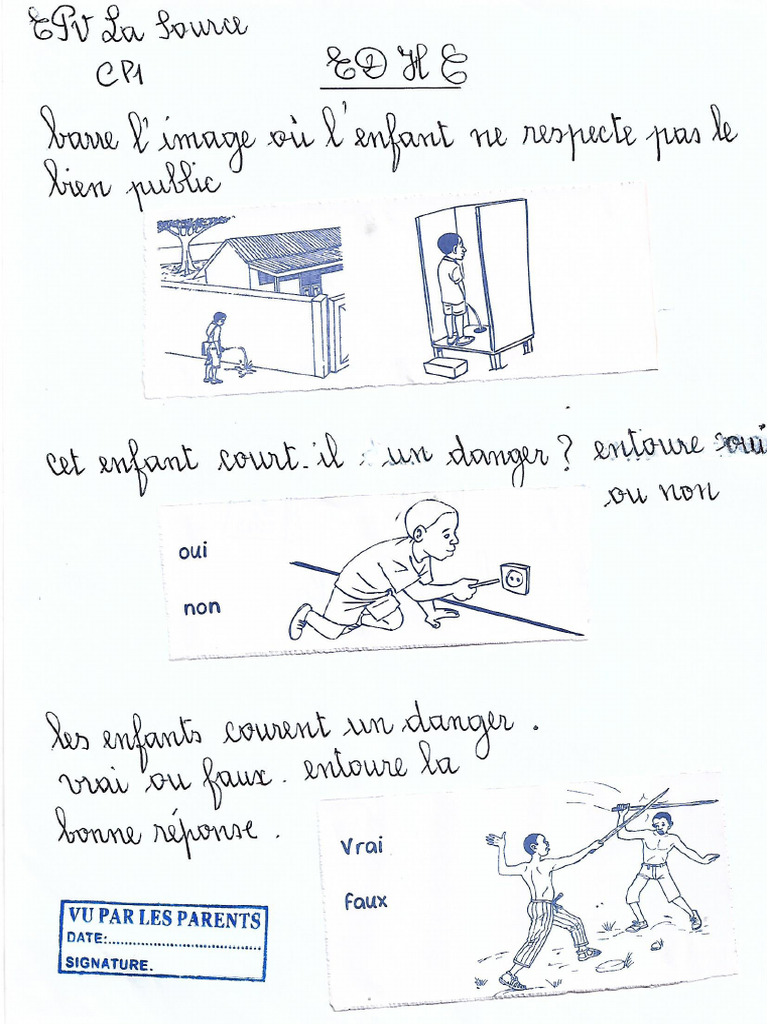 EPV La Source
CP1
EDHE
barre l'image où l'enfant ne respecte pas le
bien public
cet enfant court-il un danger ? entoure oui
ou non
oui
non
les enfants courent un danger.
vrai ou faux. entoure la
bonne réponse.
Vrai
faux
VU PAR LES PARENTS
DATE:
SIGNATURE.